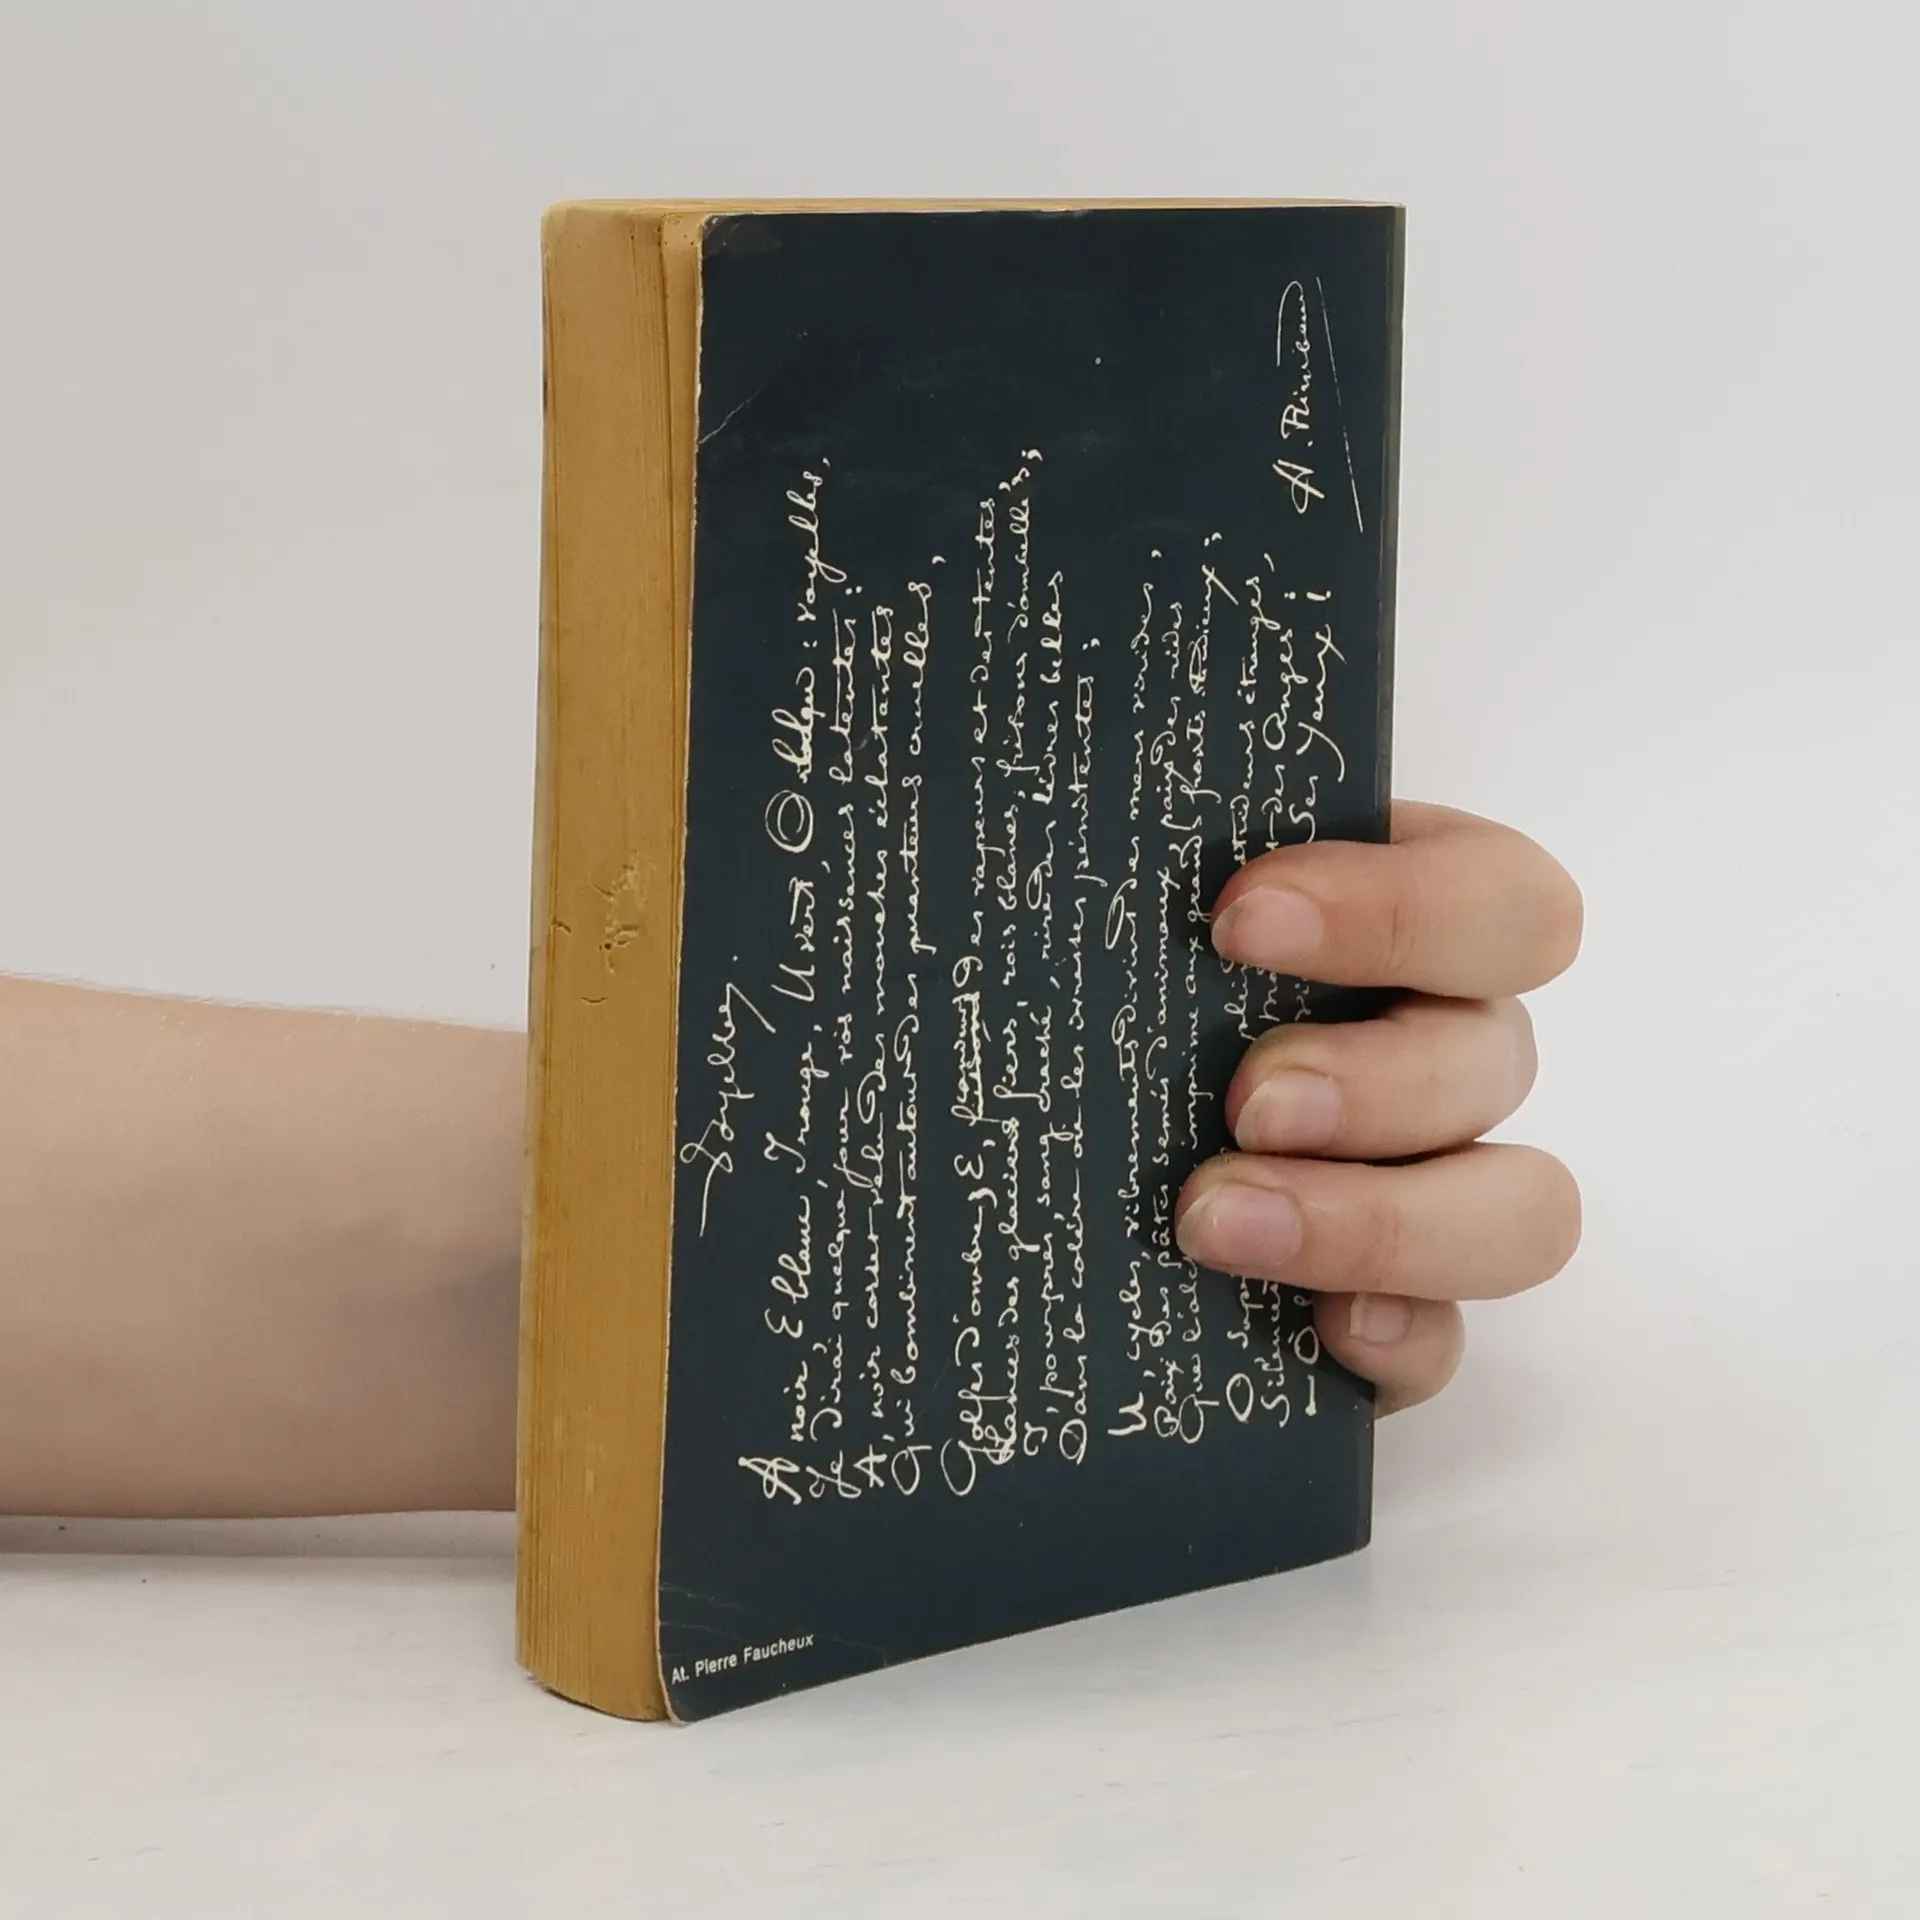 Voyelles.
A noir, E blanc, I rouge, U vert, O bleu : voyelles,
Je dirai quelque jour vos naissances latentes :
A, noir corset velu des mouches éclatantes
Qui bombinent autour des puanteurs cruelles,
Golfes d'ombre ; E, frissons candeurs des vapeurs et des tentes,
Lances des glaciers fiers, rois blancs, frissons d'ombelles ;
I, pourpres, sang craché, rire des lèvres belles
Dans la colère ou les ivresses pénitentes ;
U, cycles, vibrements divins des mers virides,
Paix des pâtis semés d'animaux, paix des rides
Que l'alchimie imprime aux grands fronts studieux ;
O, strideurs étranges,
Silences des Anges :
- O Ses Yeux !
A. Rimbaud
At. Pierre Faucheux